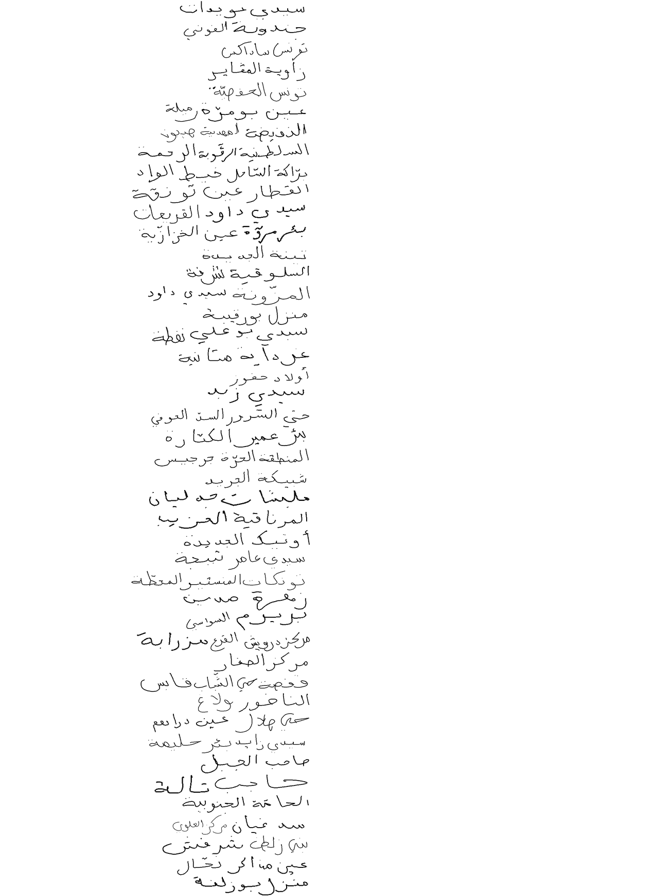 سيدي بويدان
جندوبة الفوني
تونس ساداكس
زاوية المقايز
تونس الحفصيّة
عين بومرّة رميلة
الذويبة لمهدية جبلون
السلطنية الرقوبة الرحمة
درّاكة الشامل خيط الواد
القطار عين توزقة
سيدي داود القريعات
بئر مروّة عين الخزازيّة
تبنة الجديدة
السلوقية شرفة
المزّونة سيدي داود
منزل بورقيبة
سيدي بو علي نفطة
عين داية متانية
أولاد حفوز
سيدي زيد
حيّ السّرور السند العوني
بئر عمير الكتارة
المنطقة الحرّة جرجيس
شبيكة الجريد
مليشات جد ليان
المرناقية الغريب
أوتيك الجديدة
سيدي عامر شيحة
تونكات المنستير المحطّة
زهرة مدين
بريرم السواسي
مركز درويش الفرع مزرابة
مركز الصفار
قفصة حيّ الشباب فاس
الناظور بولاغ
حيّ هلال عين دراهم
سيدي زايد بئر حليمة
حاجب الجبل
حاجب تالة
الحامّة الجنوبية
سد عليان مركز العلوي
بني زلطن شرفش
عين مذاكر نحّال
منزل بوزلفة